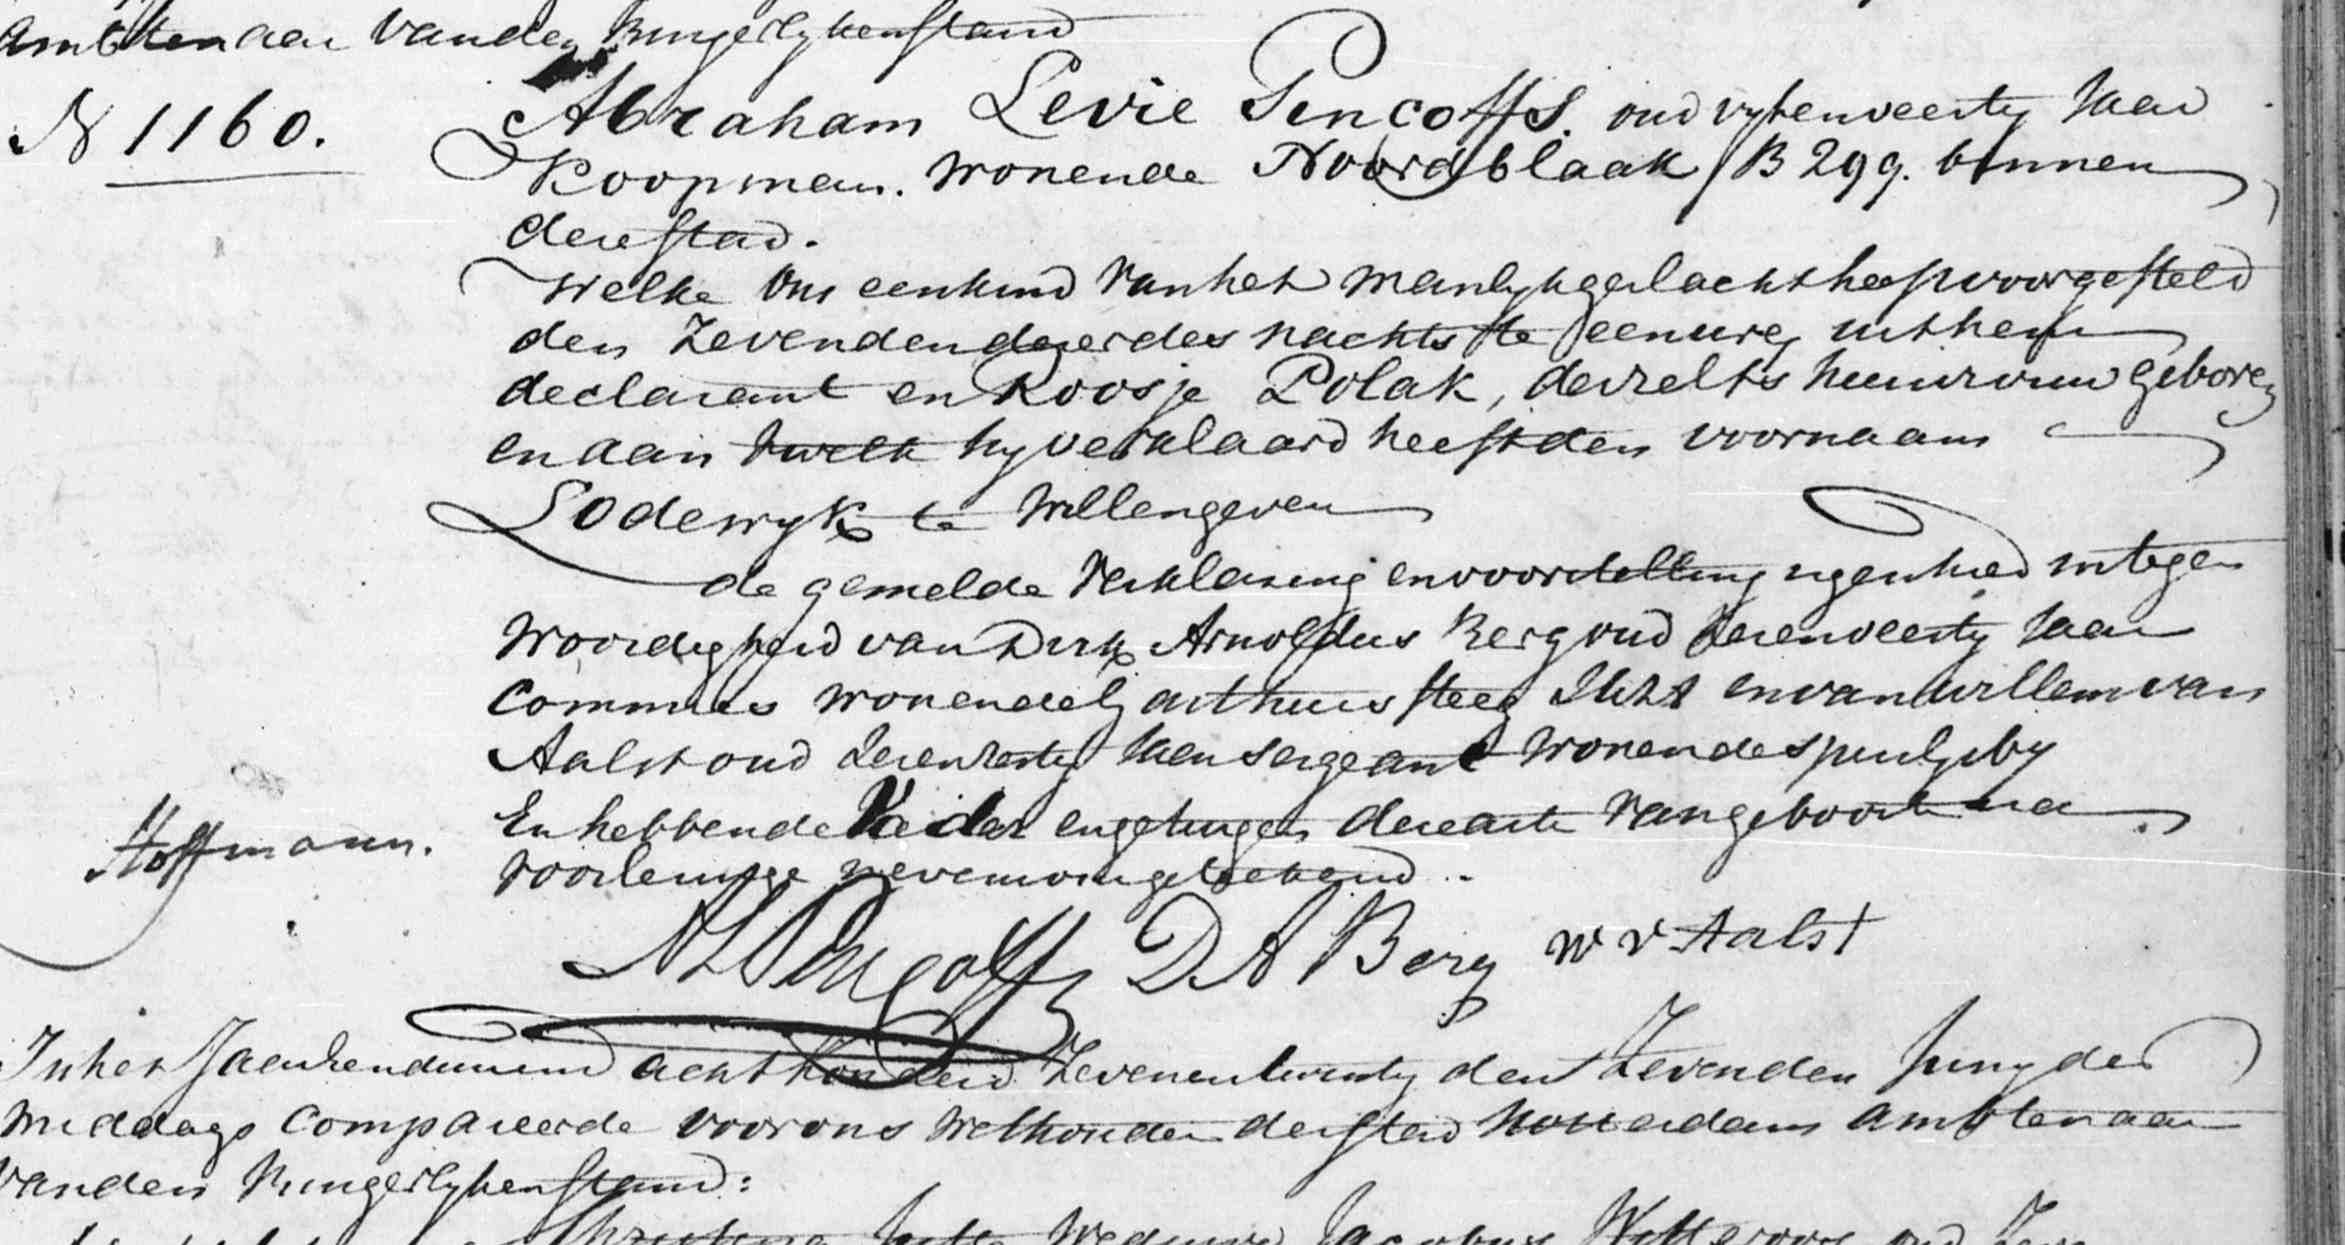 Ambtenaar vanden Burgerlykenstand
N 1160.
Abraham Levie Pencoffs. oud vyfenveertig Jaar
Koopman. wonende Noordblaak / B 299. binnen
dese stad.
Welke ons eenkind vanhet manlyk geslacht heeft voorgesteld
den Zevenden deser des nachts te eenure uithem
declarant en Roosje Polak, deszelfs huisvrouw geboren
en aan twelk hy verklaard heeft den voornaam
Lodewyk te willengeven
de gemelde verklaring envoorstelling zyn in tegen
woordigheid van Dirk Arnoldus Berg oud Zevenveertig Jaar
Commies wonende steeg en van willem van
Aalst oud Jaar sergeant wonende
En hebbende Vader en getuigen dese acte van geboorte na
voorlezinge nevens ons getekend.
Hoffmann.
A L Pencoffs D A Berg w v Aalst
In het Jaar achthonderd Zevenentwintig den Zevenden Juny des
middags Compareerde voor ons wethouder der stad Rotterdam Ambtenaar
vanden Burgerlykenstand:
Weduwe Jacobus oud